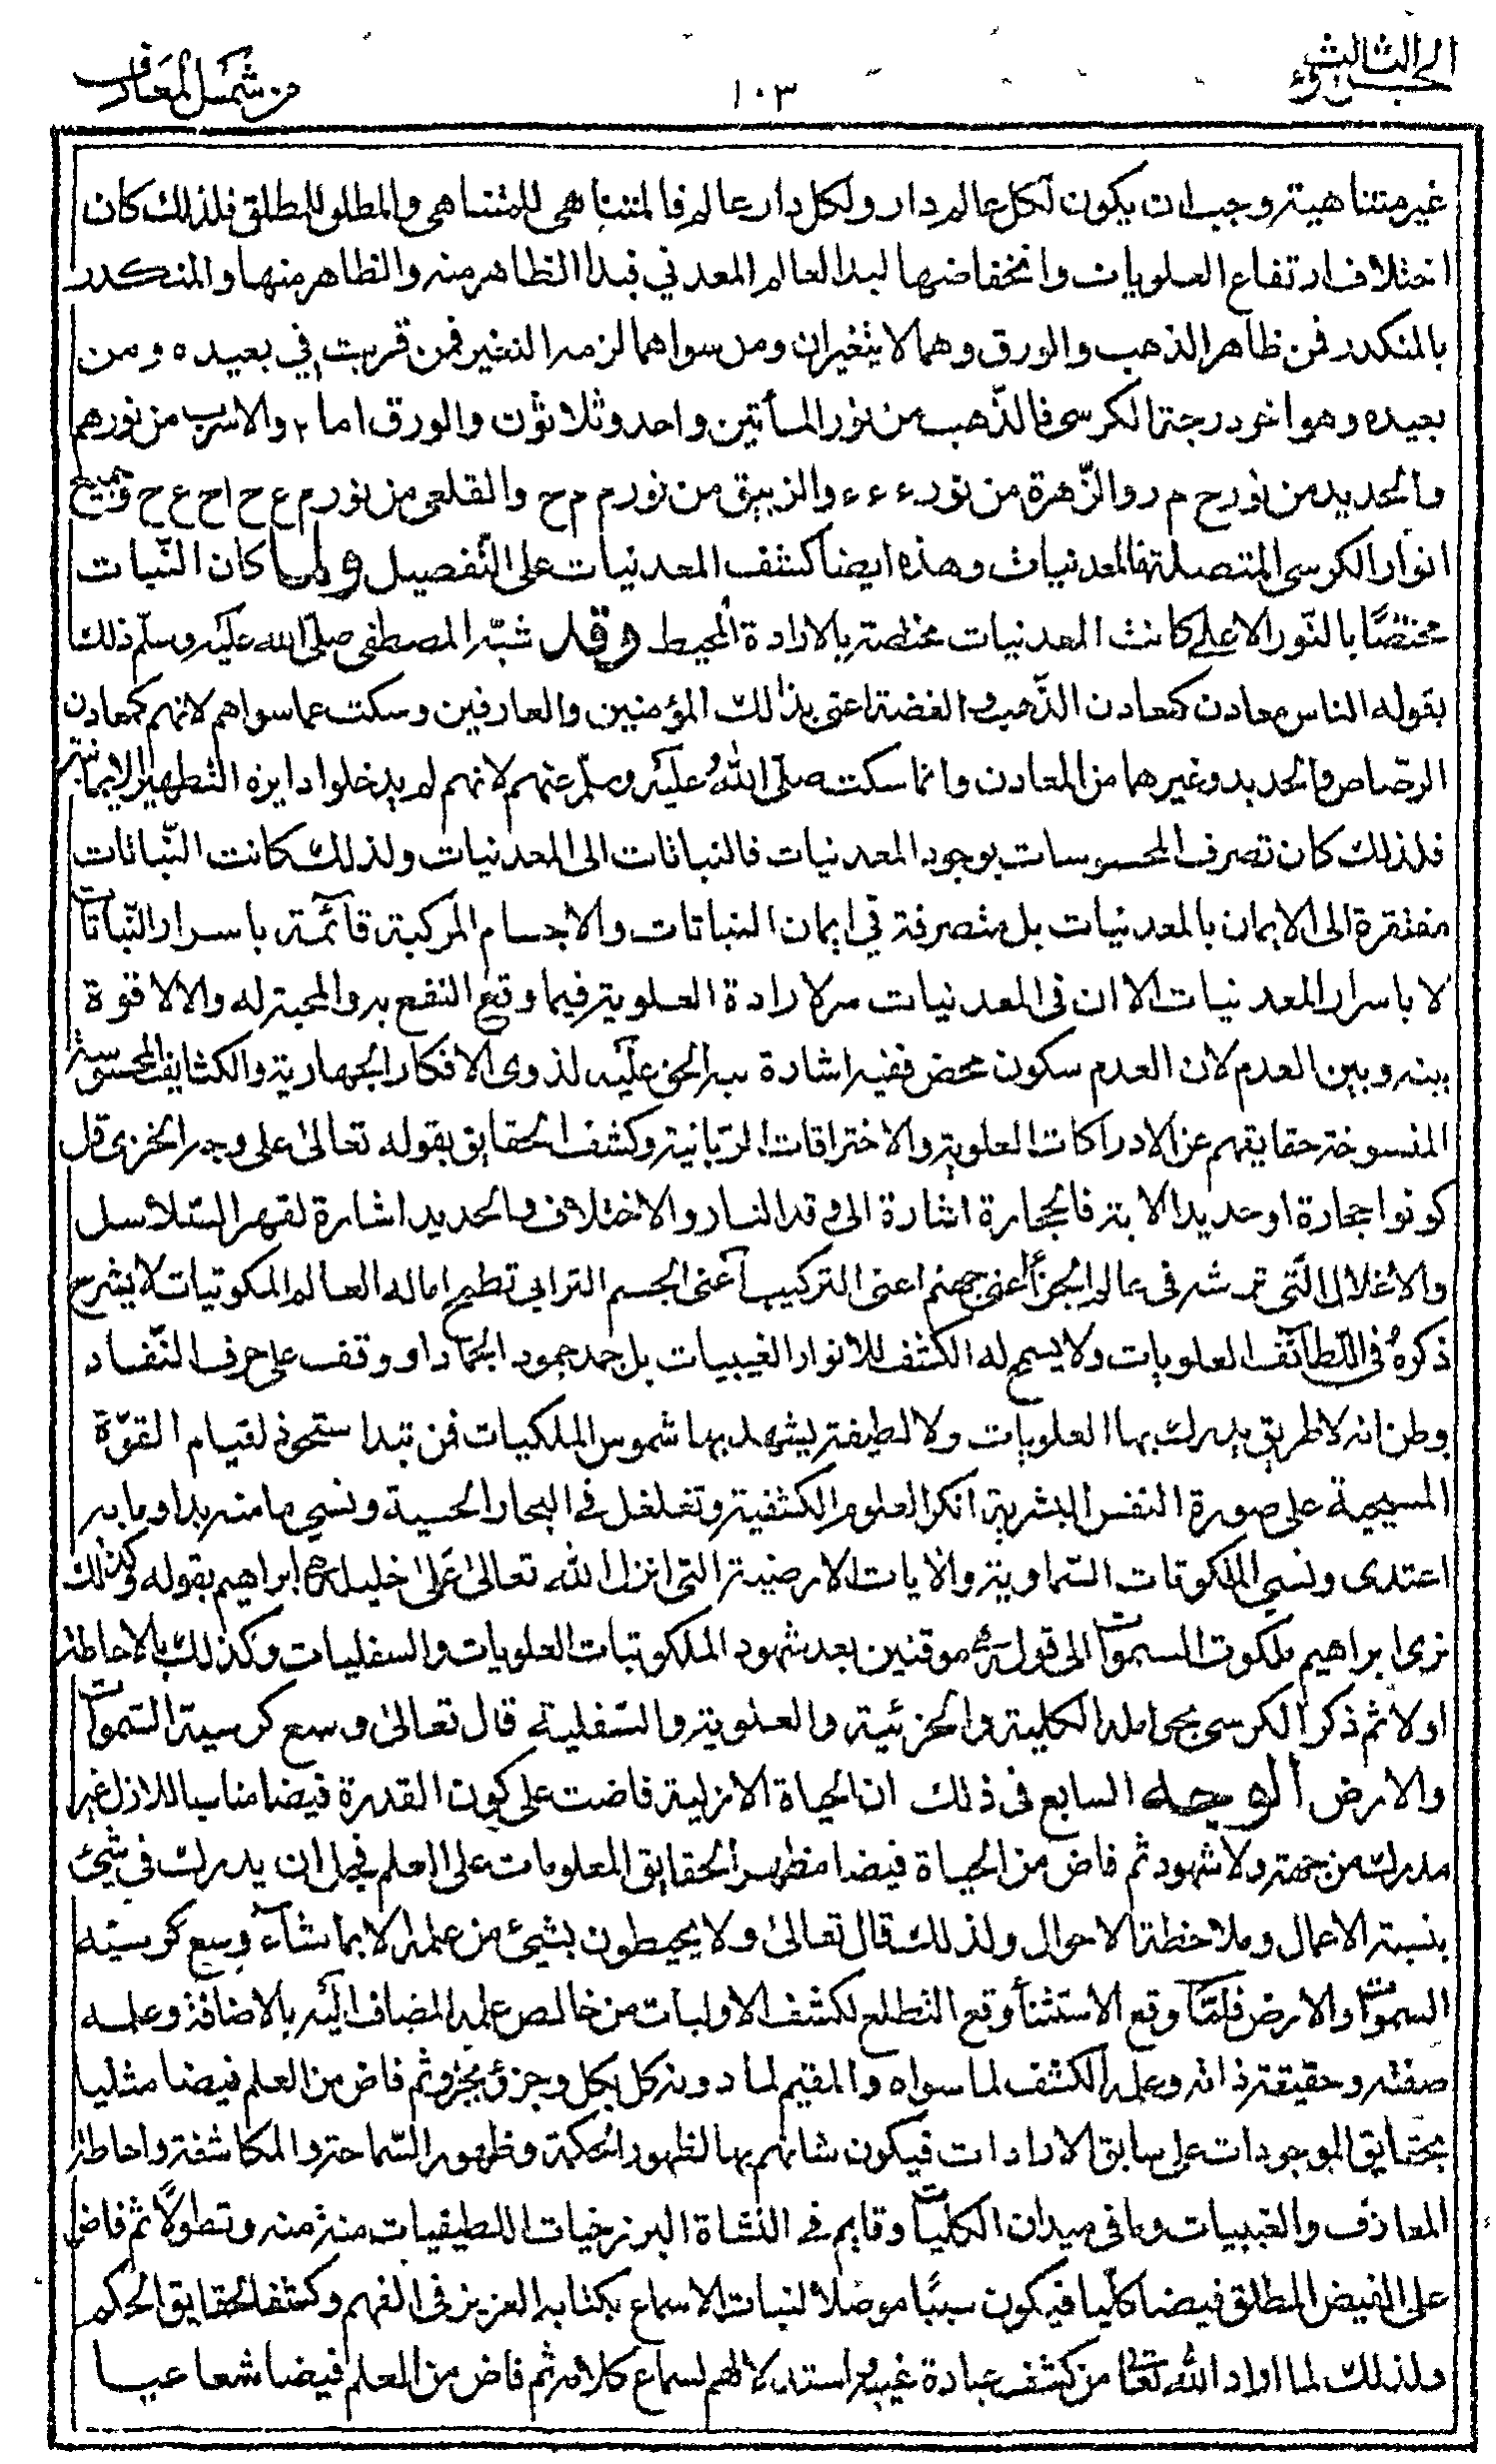 الجزء الثالث
١٠٣
من شمس المعارف
غير متناهية وجب ان يكون لكل عالم دار ولكل دار عالم فالمتناهى للمتناهى والمطلق للمطلق فلذلك كان
اختلاف ارتفاع العلويات وانخفاضها لبدا العالم المعدني فبدا الظاهر منه والظاهر منها والمتكدر
بالمتكدر فمن ظاهر الذهب والورق وهما لا يتغيران ومن سواهما لزمه التغير فمن قربت في بعيده ومن
بعيده وهو اخر درجة الكرسى فالذهب من نور المأتين واحد وثلاثون والورق اما ٢ والاسرب من نورهم
والحديد من نور ح م ر والزهرة من نور ء ء ء والزيبق من نور م م ح والقلعى من نور م ع ح اح ع ح وجميع
انوار الكرسى المتصلة بالمعدنيات وهذه ايضا كشف المعدنيات على التفصيل ولما كان النبات
مختصا بالنور الاعلى كانت المعدنيات مختصة بالارادة المحيط وقد شبه المصطفى صلى الله عليه وسلم ذلك
بقوله الناس معادن كمعادن الذهب والفضة اعنى بذالك المؤمنين والعارفين وسكت عما سواهم لانهم كمعادن
الرصاص والحديد وغيرهما من المعادن وانما سكت صلى الله عليه وسلم عنهم لانهم لم يدخلوا دايرة التطهير الايمانية
فلذلك كان تصرف المحسوسات بوجود المعدنيات فالنباتات الى المعدنيات ولذلك كانت النباتات
مفتقرة الى الايمان بالمعدنيات بل متصرفة في ايمان النباتات والاجسام المركبة قائمة باسرار النباتات
لا باسرار المعدنيات الا ان فى المعدنيات سر الارادة العلوية فيما وقع النفع به والمحبة له والا لا قوة
بينه وبين العدم لان العدم سكون محض ففيه اشارة سر الحق عليه لذوى الافكار الجهارية والكثايف المحسوسة
المنسوخة حقايقهم عن الادراكات العلوية والاختراقات الربانية وكشف الحقايق بقوله تعالى على وجه الخزى قل
كونوا حجارة او حديدا الاية فالحجارة اشارة الى وقد النار والاختلاف والحديد اشارة لقهر السلاسل
والاغلال التى تمر شر فى عالم الجزأ اعنى جهنم اعنى التركيب اعنى الجسم الترابى تطمح اماله العالم المكوتيات لا يشرح
ذكره فى اللطائف العلويات ولا يسمح له الكشف للانوار الغيبيات بل جمد جمود الجماد او وقف على حرف النفاد
وظن انه لا طريق يدرك بها العلويات ولا لطيفة يشهد بها شموس الملكيات فمن تبدا ستحوذ لقيام القوة
المسيحية على صورة النفس البشرية انكر العلوم الكشفية وتغلغل فى البحار الحسية ونسى ما منه بدا وما به
اعتدى ونسى الملكوتات السماوية والايات الارضية التى انزل الله تعالى على خليله ابراهيم بقوله وكذلك
نرى ابراهيم ملكوت السموات الى قوله موقنين بعد شهود الملكوتيات العلويات والسفليات وكذلك بالاحاطة
اولا ثم ذكر الكرسى بحوامله الكلية والجزئية والعلوية والسفلية قال تعالى وسع كرسية السموات
والارض الوجه السابع فى ذلك ان الحياة الازلية فاضت على كون القدرة فيضا مناسبا للازل غير
مدرك من جهة ولا شهود ثم فاض من الحياة فيضا مظهر الحقايق المعلومات على العلم فيل ان يدرك فى شئ
بنسبة الاعمال وملاحظة الاحوال ولذلك قال تعالى ولا يحيطون بشئ من علمه الا بما شاء وسع كرسيه
السموات والارض فلما وقع الاستثنا وقع التطلع لكشف الاوليات من خالص علمه المضاف اليه بالاضافة وعلمه
صفته وحقيقة ذاته وعلمه الكشف لما سواه والمقيم لما دونه كل بكل وجزؤ بجزؤ ثم فاض من العلم فيضا مثليا
بحقايق الموجودات على سابق الارادات فيكون شانهم بها لظهور الحكمة وظهور السماحة والمكاشفة واحاطة
المعارف والغيبيات وما فى ميدان الكليات وقايم فى النشاة البرزخيات اللطيفيات منة منه وتطولا ثم فاض
على الفيض المطلق فيضا كليا فيكون سببا موصلا لنبات الاسماع بكتابه العزيز فى الفهم وكشف الحقايق الحكم
ولذلك لما اراد الله تعالى من كشف عبادة غيبه استدلالهم لسماع كلامه ثم فاض من العلم فيضا شعاعيا